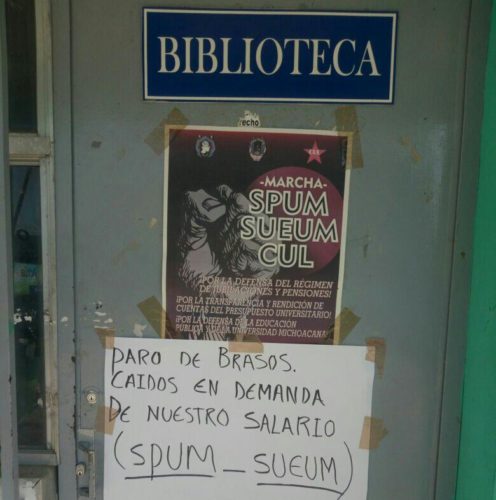 BIBLIOTECA
recho
-MARCHA-
SPUM
SUEUM
CUL
¡POR LA DEFENSA DEL RÉGIMEN
DE JUBILACIONES Y PENSIONES!
¡POR LA TRANSPARENCIA Y RENDICIÓN DE
CUENTAS DEL PRESUPUESTO UNIVERSITARIO!
¡POR LA DEFENSA DE LA EDUCACIÓN
PÚBLICA Y DE LA UNIVERSIDAD MICHOACANA!
PARO DE BRASOS.
CAIDOS EN DEMANDA
DE NUESTRO SALARIO
(SPUM _ SUEUM)